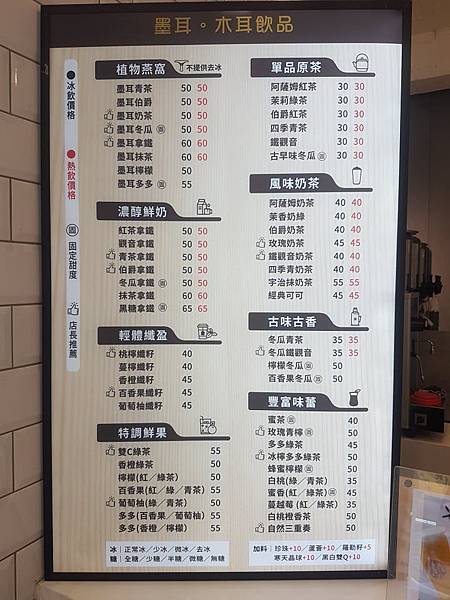 墨耳。木耳飲品
●冰飲價格
●熱飲價格
固 固定甜度
店長推薦
植物燕窩 不提供去冰
墨耳青茶 50 50
墨耳伯爵 50 50
墨耳奶茶 50 50
墨耳冬瓜 固 50 50
墨耳拿鐵 60 60
墨耳抹茶 60 60
墨耳檸檬 50
墨耳多多 固 55
濃醇鮮奶
紅茶拿鐵 50 50
觀音拿鐵 50 50
青茶拿鐵 50 50
伯爵拿鐵 50 50
冬瓜拿鐵 固 50 50
抹茶拿鐵 60 60
黑糖拿鐵 固 65 65
輕體纖盈
桃檸纖籽 40
蔓檸纖籽 40
香橙纖籽 45
百香果纖籽 45
葡萄柚纖籽 45
特調鮮果
雙C綠茶 55
香橙綠茶 50
檸檬(紅/綠茶) 50
百香果(紅/綠/青茶) 55
葡萄柚(綠/青茶) 50
多多(百香果/葡萄柚) 55
多多(香橙/檸檬) 55
冰｜正常冰／少冰／微冰／去冰
糖｜全糖／少糖／半糖／微糖／無糖
單品原茶
阿薩姆紅茶 30 30
茉莉綠茶 30 30
伯爵紅茶 30 30
四季青茶 30 30
鐵觀音 30 30
古早味冬瓜 固 30 30
風味奶茶
阿薩姆奶茶 40 40
茉香奶綠 40 40
伯爵奶茶 40 40
玫瑰奶茶 45 45
鐵觀音奶茶 45 45
四季青奶茶 40 40
宇治抹奶茶 55 55
經典可可 45 45
古味古香
冬瓜青茶 35 35
冬瓜鐵觀音 35 35
檸檬冬瓜 固 50
百香果冬瓜 固 50
豐富味蕾
蜜茶 固 40
玫瑰青檸 固 50
多多綠茶 45
冰檸多多綠茶 50
蜂蜜檸檬 固 50
白桃(綠/青茶) 35
蜜香(紅/綠茶) 固 45
蔓越莓(紅/綠茶) 35
白桃橙香茶 50
自然三重奏 50
加料｜珍珠+10／蘆薈+10／羅勒籽+5
寒天晶球+10／黑白雙Q+10